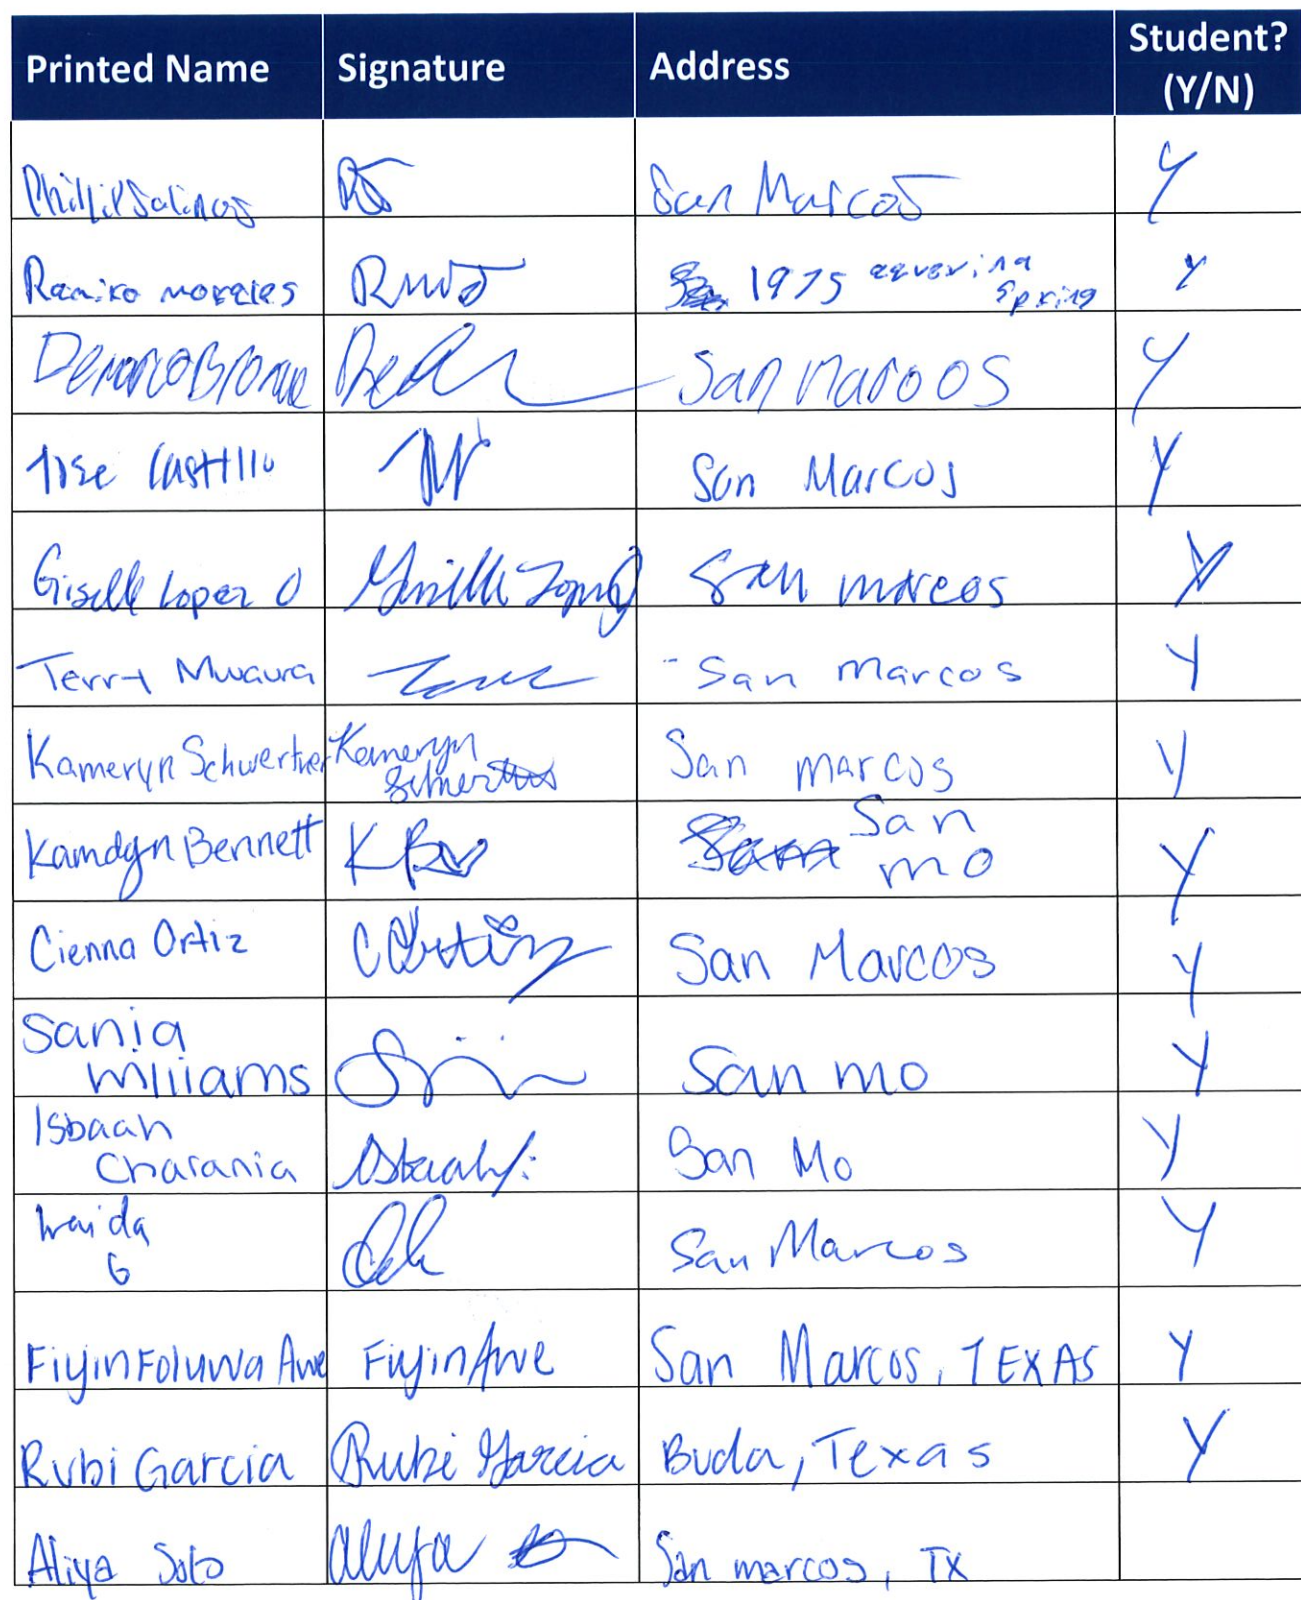 Printed Name Signature Address Student? (Y/N)
Phillip Salinas San Marcos Y
Ramiro morales 1975 aquarina spring Y
Demarco Bronue San Marcos Y
Jose Castillo San Marcos Y
Giselle Lopez O Giselle Lopez San marcos Y
Terry Mwaura San Marcos Y
Kameryn Schwertner Kameryn San marcos Y
Kamdyn Bennett KB San mo Y
Cienna Ortiz C Ortiz San Marcos Y
Sania Williams San mo Y
Isbaah Charania Isbaah San Mo Y
Iraida G San Marcos Y
Fiyinfoluwa Awe Fiyin Awe San Marcos, TEXAS Y
Rubi Garcia Rubi Garcia Buda, Texas Y
Aliya Soto Aliya San marcos, TX